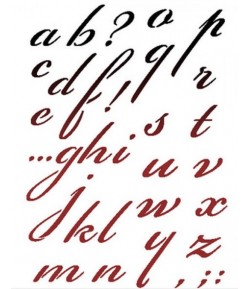 a b ? o p
c d q r
e f ! s t
...g h i u v
j k l w x
m n y z , ; :